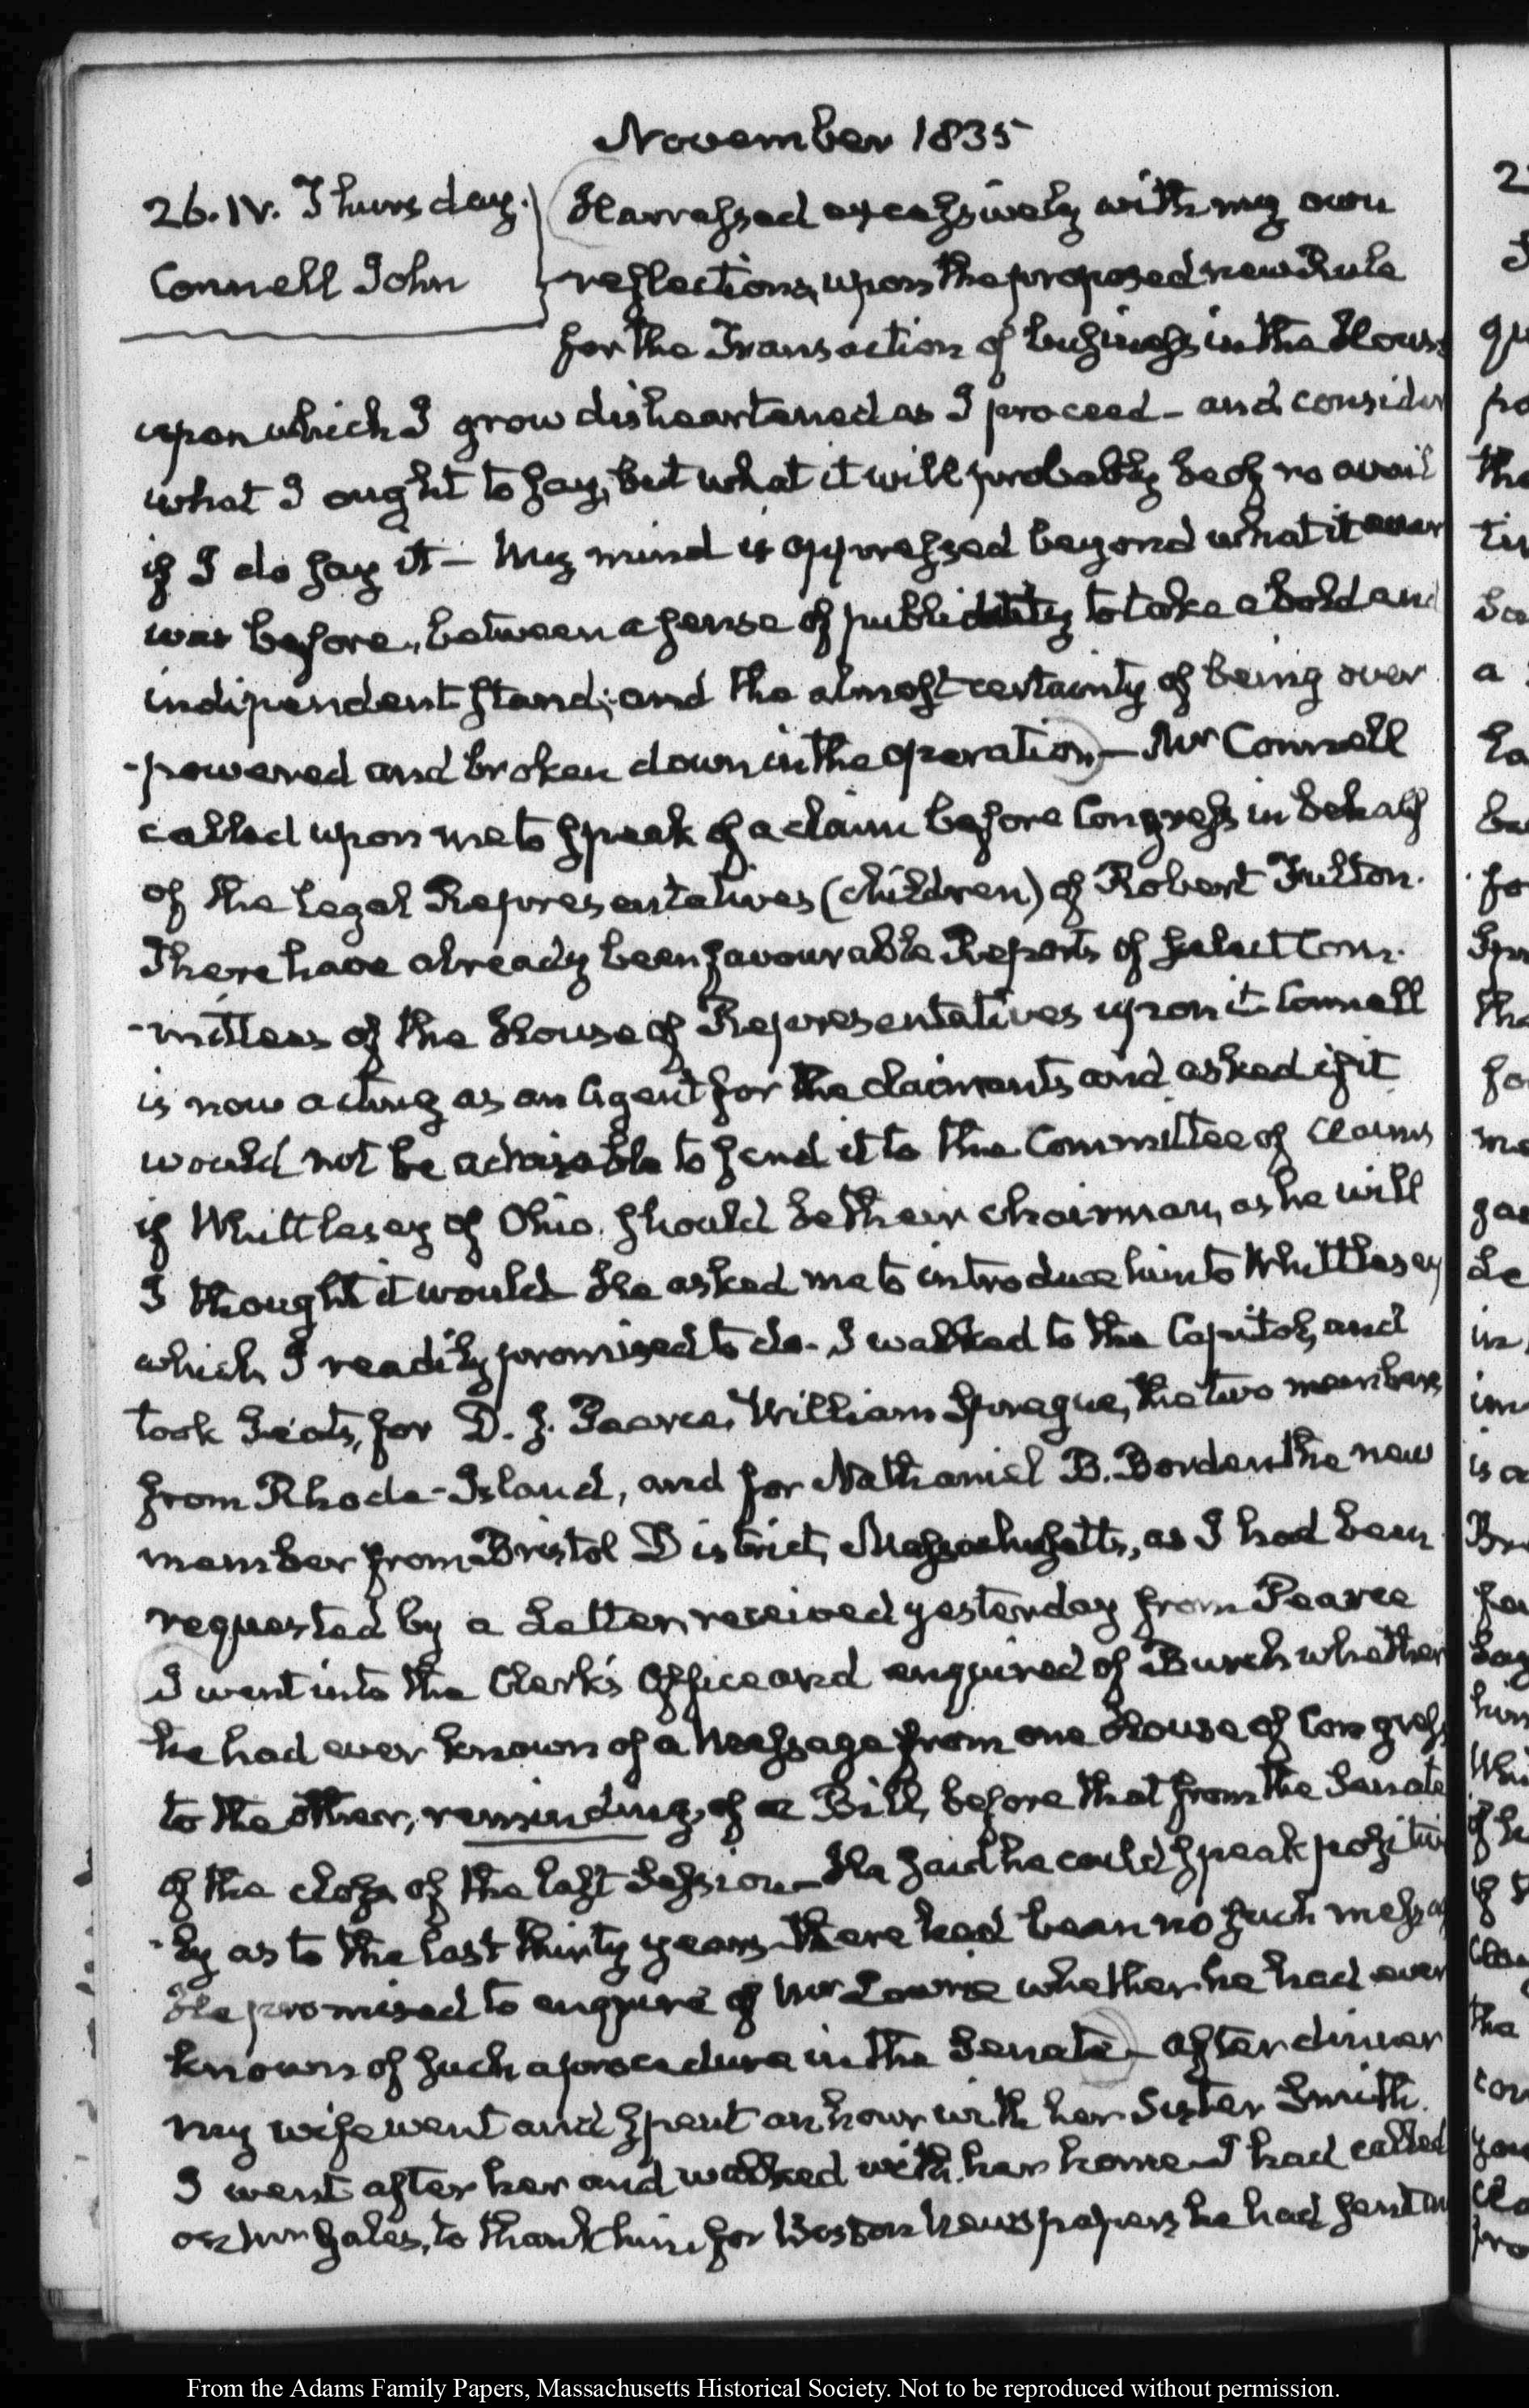 November 1835
26. IV. Thursday. Harrassed excessively with my own
Connell John reflections, upon the proposed new Rule
for the Transaction of business in the House
upon which I grow disheartened as I proceed - and consider
what I ought to say, but what it will probably be of no avail
if I do say it - My mind is oppressed beyond what it ever
was before, between a sense of public duty to take a bold and
independent stand; and the almost certainty of being over
-powered and broken down in the operation - Mr Connell
called upon me to speak of a claim before Congress in behalf
of the legal Representatives (children) of Robert Fulton.
There have already been favourable Reports of select Com-
-mittees of the House of Representatives upon it Connell
is now acting as an Agent for the claimants and asked if it
would not be advisable to send it to the Committee of Claims
if Whittlesey of Ohio should be their chairman, as he will
I thought it would He asked me to introduce him to Whittlesey
which I readily promised to do. I walked to the Capitol, and
took Seats, for D. J. Pearce, William Sprague, the two members
from Rhode-Island, and for Nathaniel B. Borden the new
member from Bristol District, Massachusetts, as I had been
requested by a Letter received yesterday from Pearce
I went into the Clerk's Office and enquired of Burch whether
he had ever known of a Message from one House of Congress
to the other, reminding, of a Bill, before that from the Senate
of the close of the last Session - He said he could speak positive
-ly as to the last thirty years there had been no such messag
He promised to enquire of Mr Lowrie whether he had ever
known of such a procedure in the Senate - After dinner
my wife went and spent an hour with her Sister Smith.
I went after her and walked with her home - I had called
on Mr Gales, to thank him for Boston Newspapers he had sent m
From the Adams Family Papers, Massachusetts Historical Society. Not to be reproduced without permission.